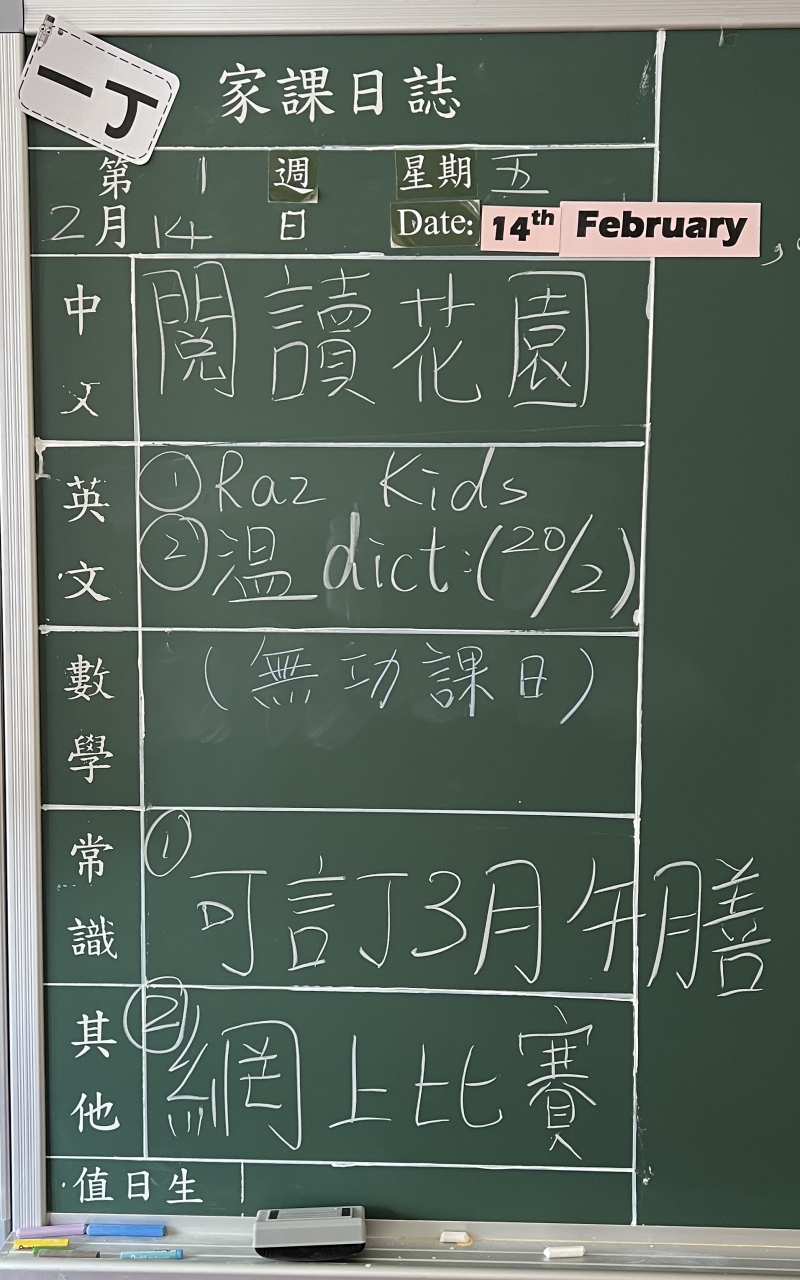 一丁
家課日誌
第 1 週 星期 五
2月 14 日 Date: 14th February
中文 閱讀花園
英文 ① Raz Kids
② 温 dict: (20/2)
數學 (無功課日)
常識 ① 可訂3月午膳
其他 ② 網上比賽
值日生